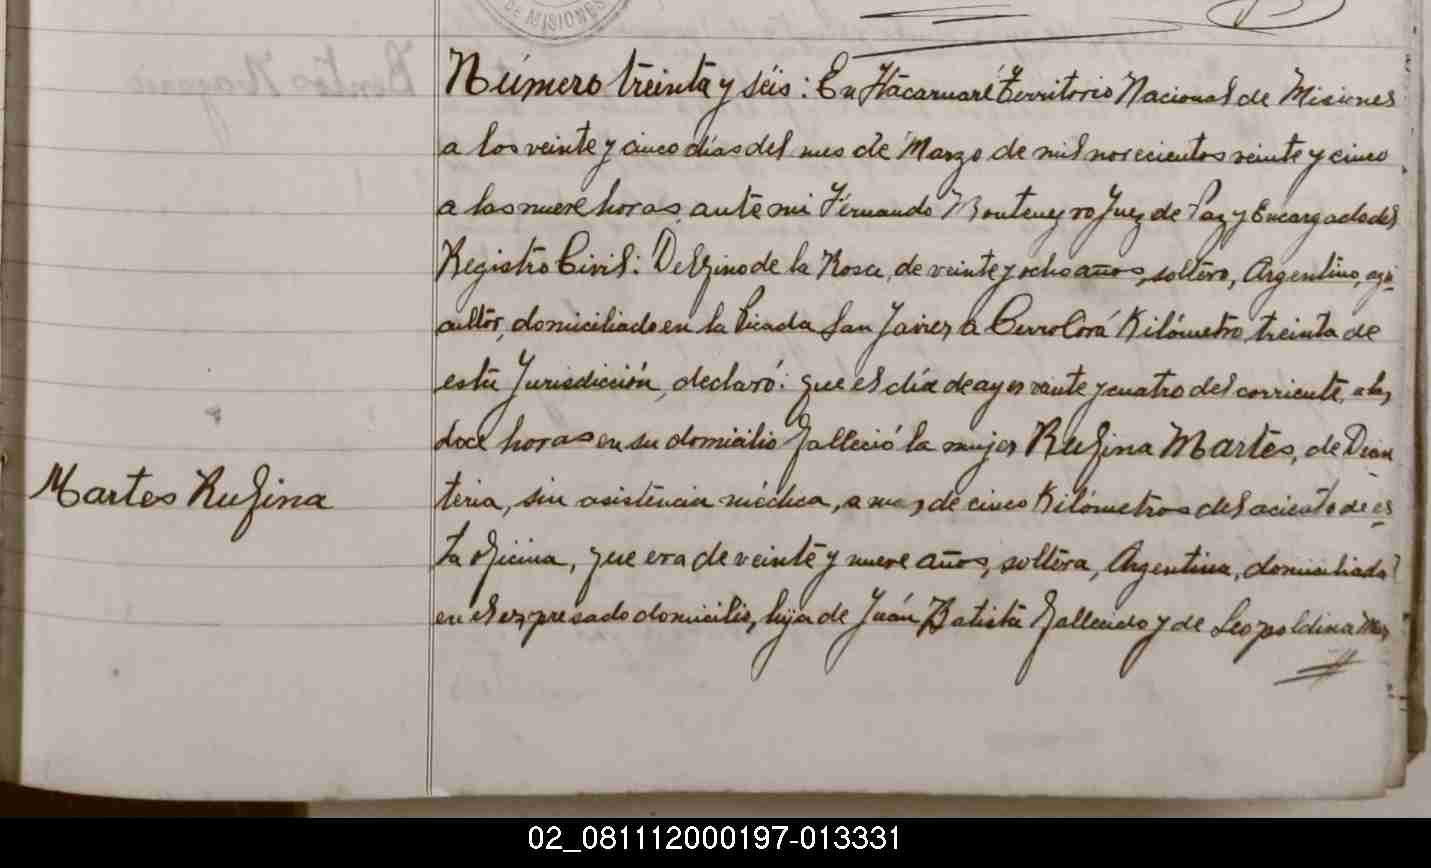 DE MISIONES
Número treinta y séis: En Itacaruaré Territorio Nacional de Misiones
a los veinte y cinco días del mes de Marzo de mil novecientos veinte y cinco
a las nueve horas, ante mi Fernando Montenegro Juez de Paz y Encargado del
Registro Civil: Delfino de la Rosa, de veinte y ocho años, soltero, Argentino, agri
cultor, domiciliado en la Picada San Javier a Cerro Corá Kilómetro treinta de
esta Jurisdicción, declaró: que el día de ayer veinte y cuatro del corriente, a las
doce horas en su domicilio falleció la mujer Rufina Martes, de Disen
Martes Rufina
teria, sin asistencia médica, a mas de cinco Kilómetros del aciento de es
ta oficina, que era de veinte y nueve años, soltera, Argentina, domiciliada
en el expresado domicilio, hija de Juán Batista fallecido y de Leopoldina Mar
02_081112000197-013331